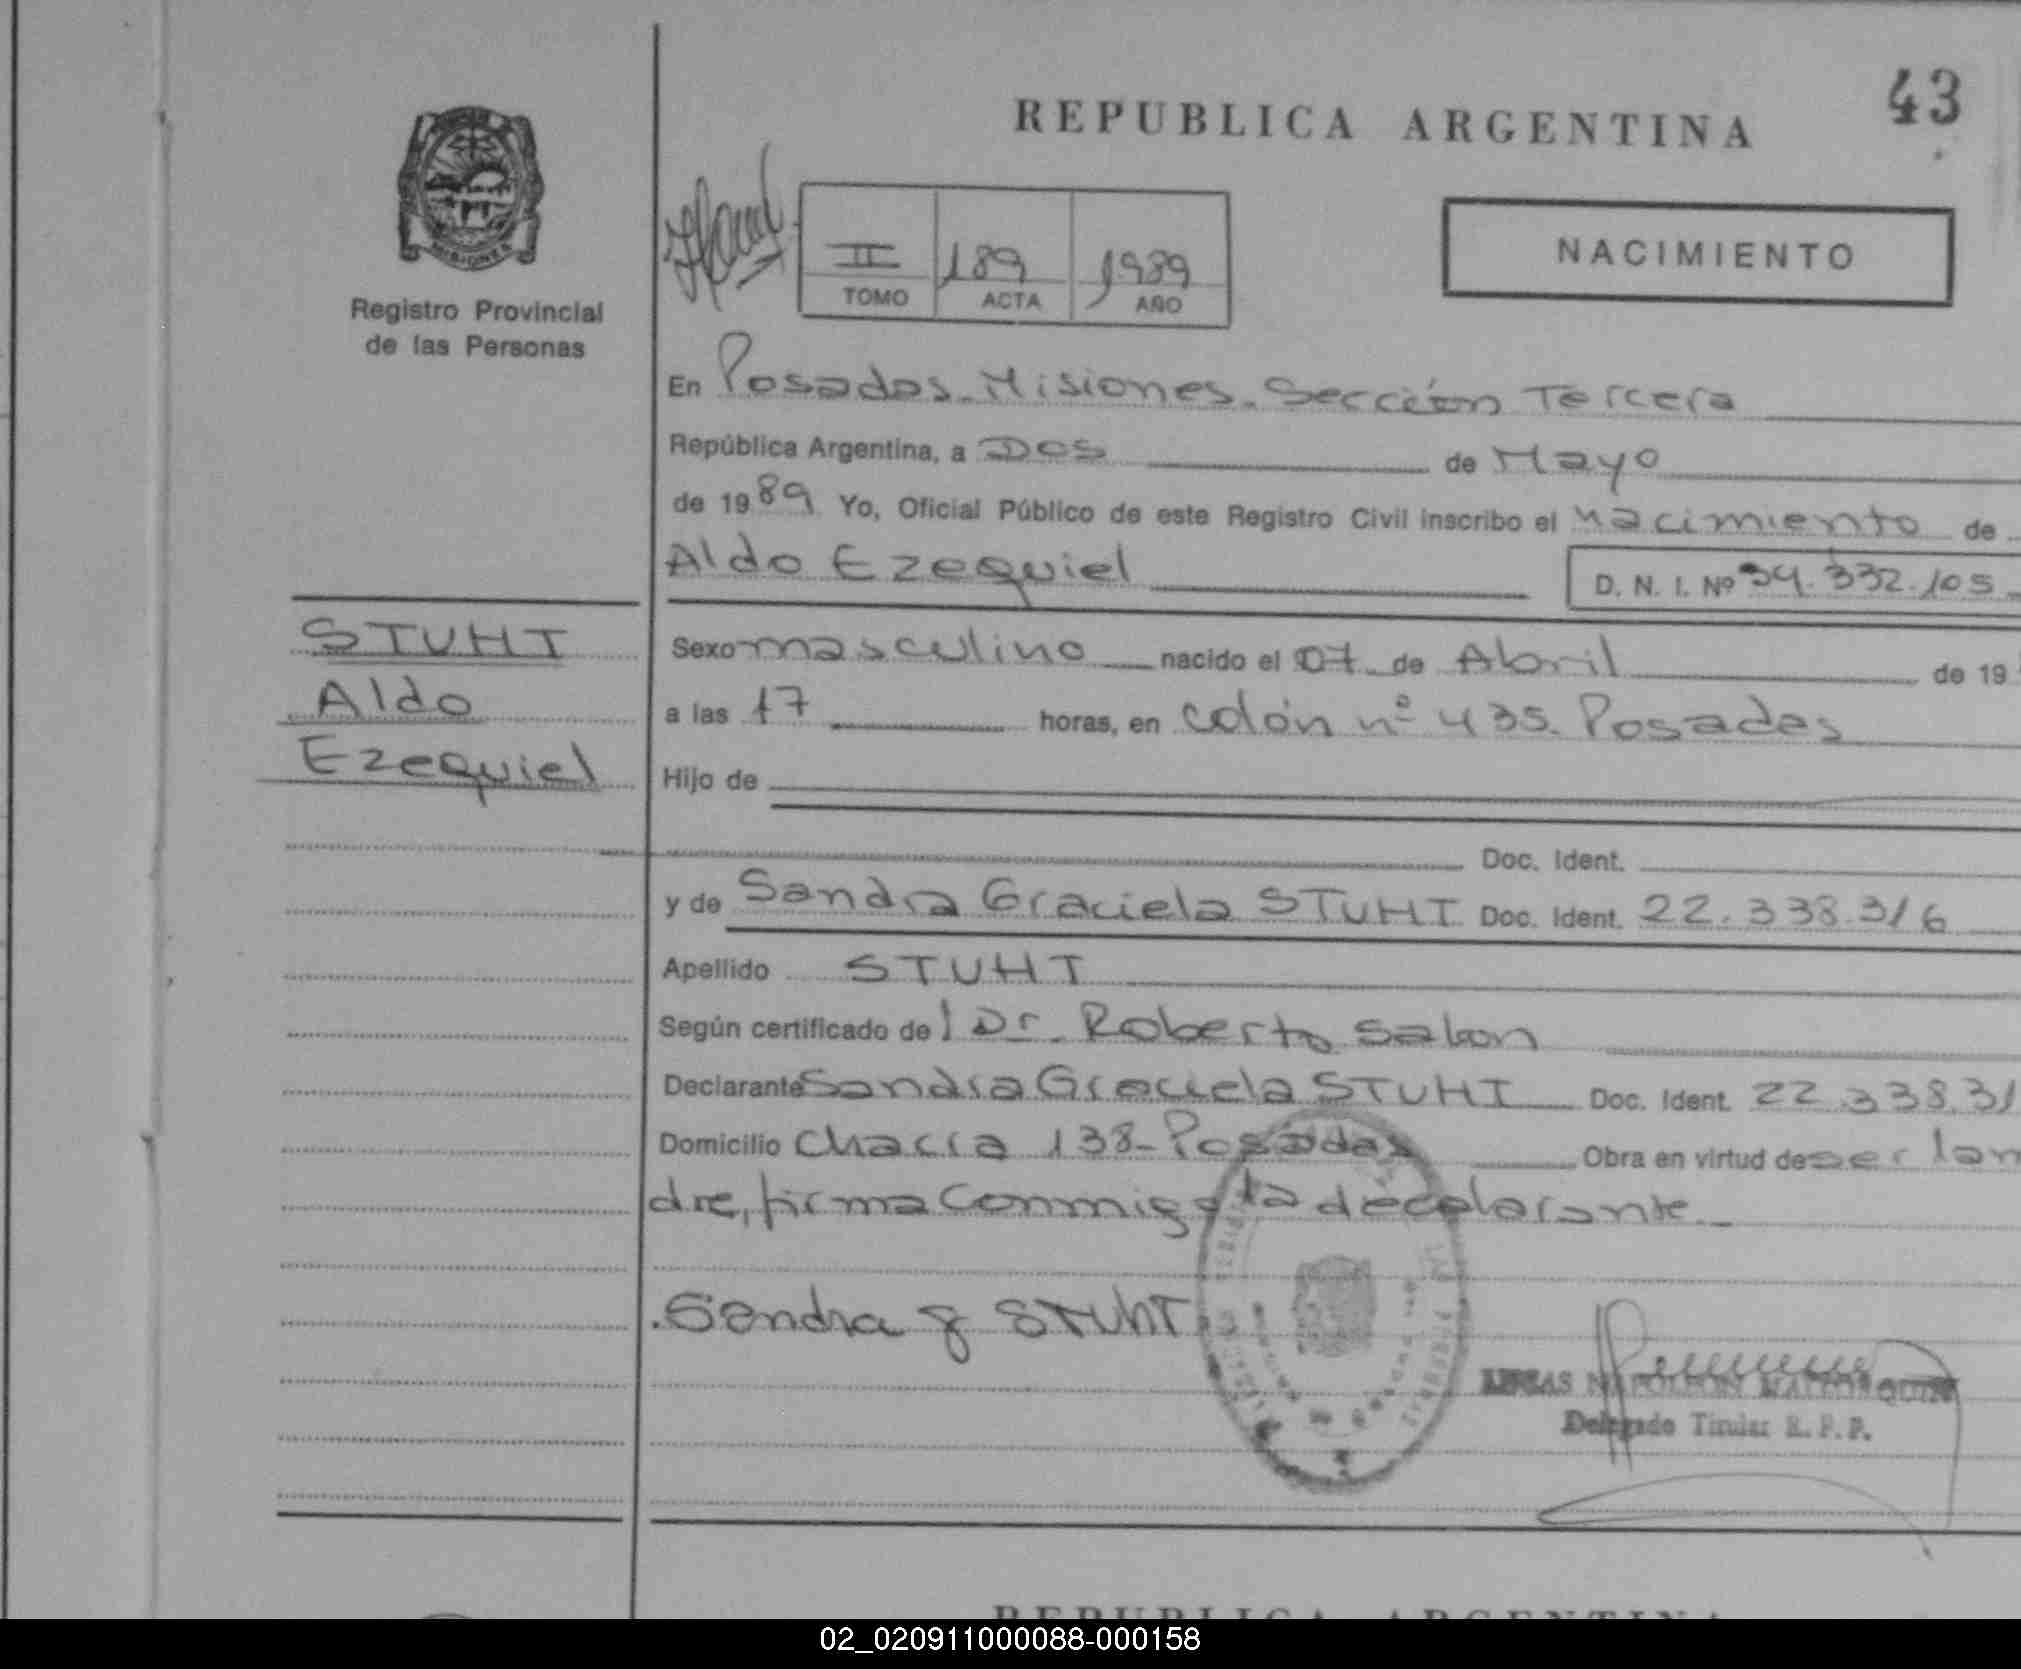 43
REPUBLICA ARGENTINA
NACIMIENTO
II 189 1989
TOMO ACTA AÑO
MISIONES
Registro Provincial
de las Personas
En Posadas. Misiones. Sección Tercera
República Argentina, a Dos de Mayo
de 1989 Yo, Oficial Público de este Registro Civil inscribo el Nacimiento de
Aldo Ezequiel D. N. I. Nº 34.332.105
STUHT
Aldo
Ezequiel
Sexo masculino nacido el 07 de Abril de 19
a las 17 horas, en colón nº 435. Posadas
Hijo de
Doc. Ident.
y de Sandra Graciela STUHT Doc. Ident. 22.338.316
Apellido STUHT
Según certificado del Dr. Roberto
Declarante Sandra Graciela STUHT Doc. Ident. 22.338.31
Domicilio Chacra 138-Posadas Obra en virtud de ser la m
dre, firma conmigo la declarante
Sandra g STUhT
Delegado Titular R. P. P.
REPUBLICA ARGENTINA
02_020911000088-000158